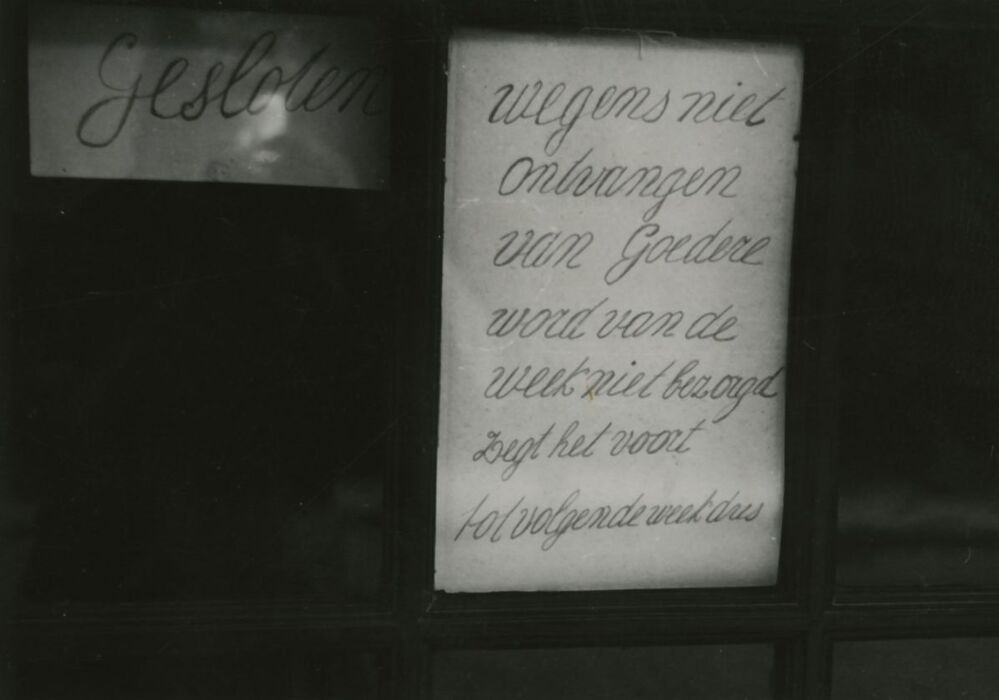 Gesloten
wegens niet
Ontvangen
van Goedere
word van de
week niet bezorgd
Zegt het voort
tot volgende week dus